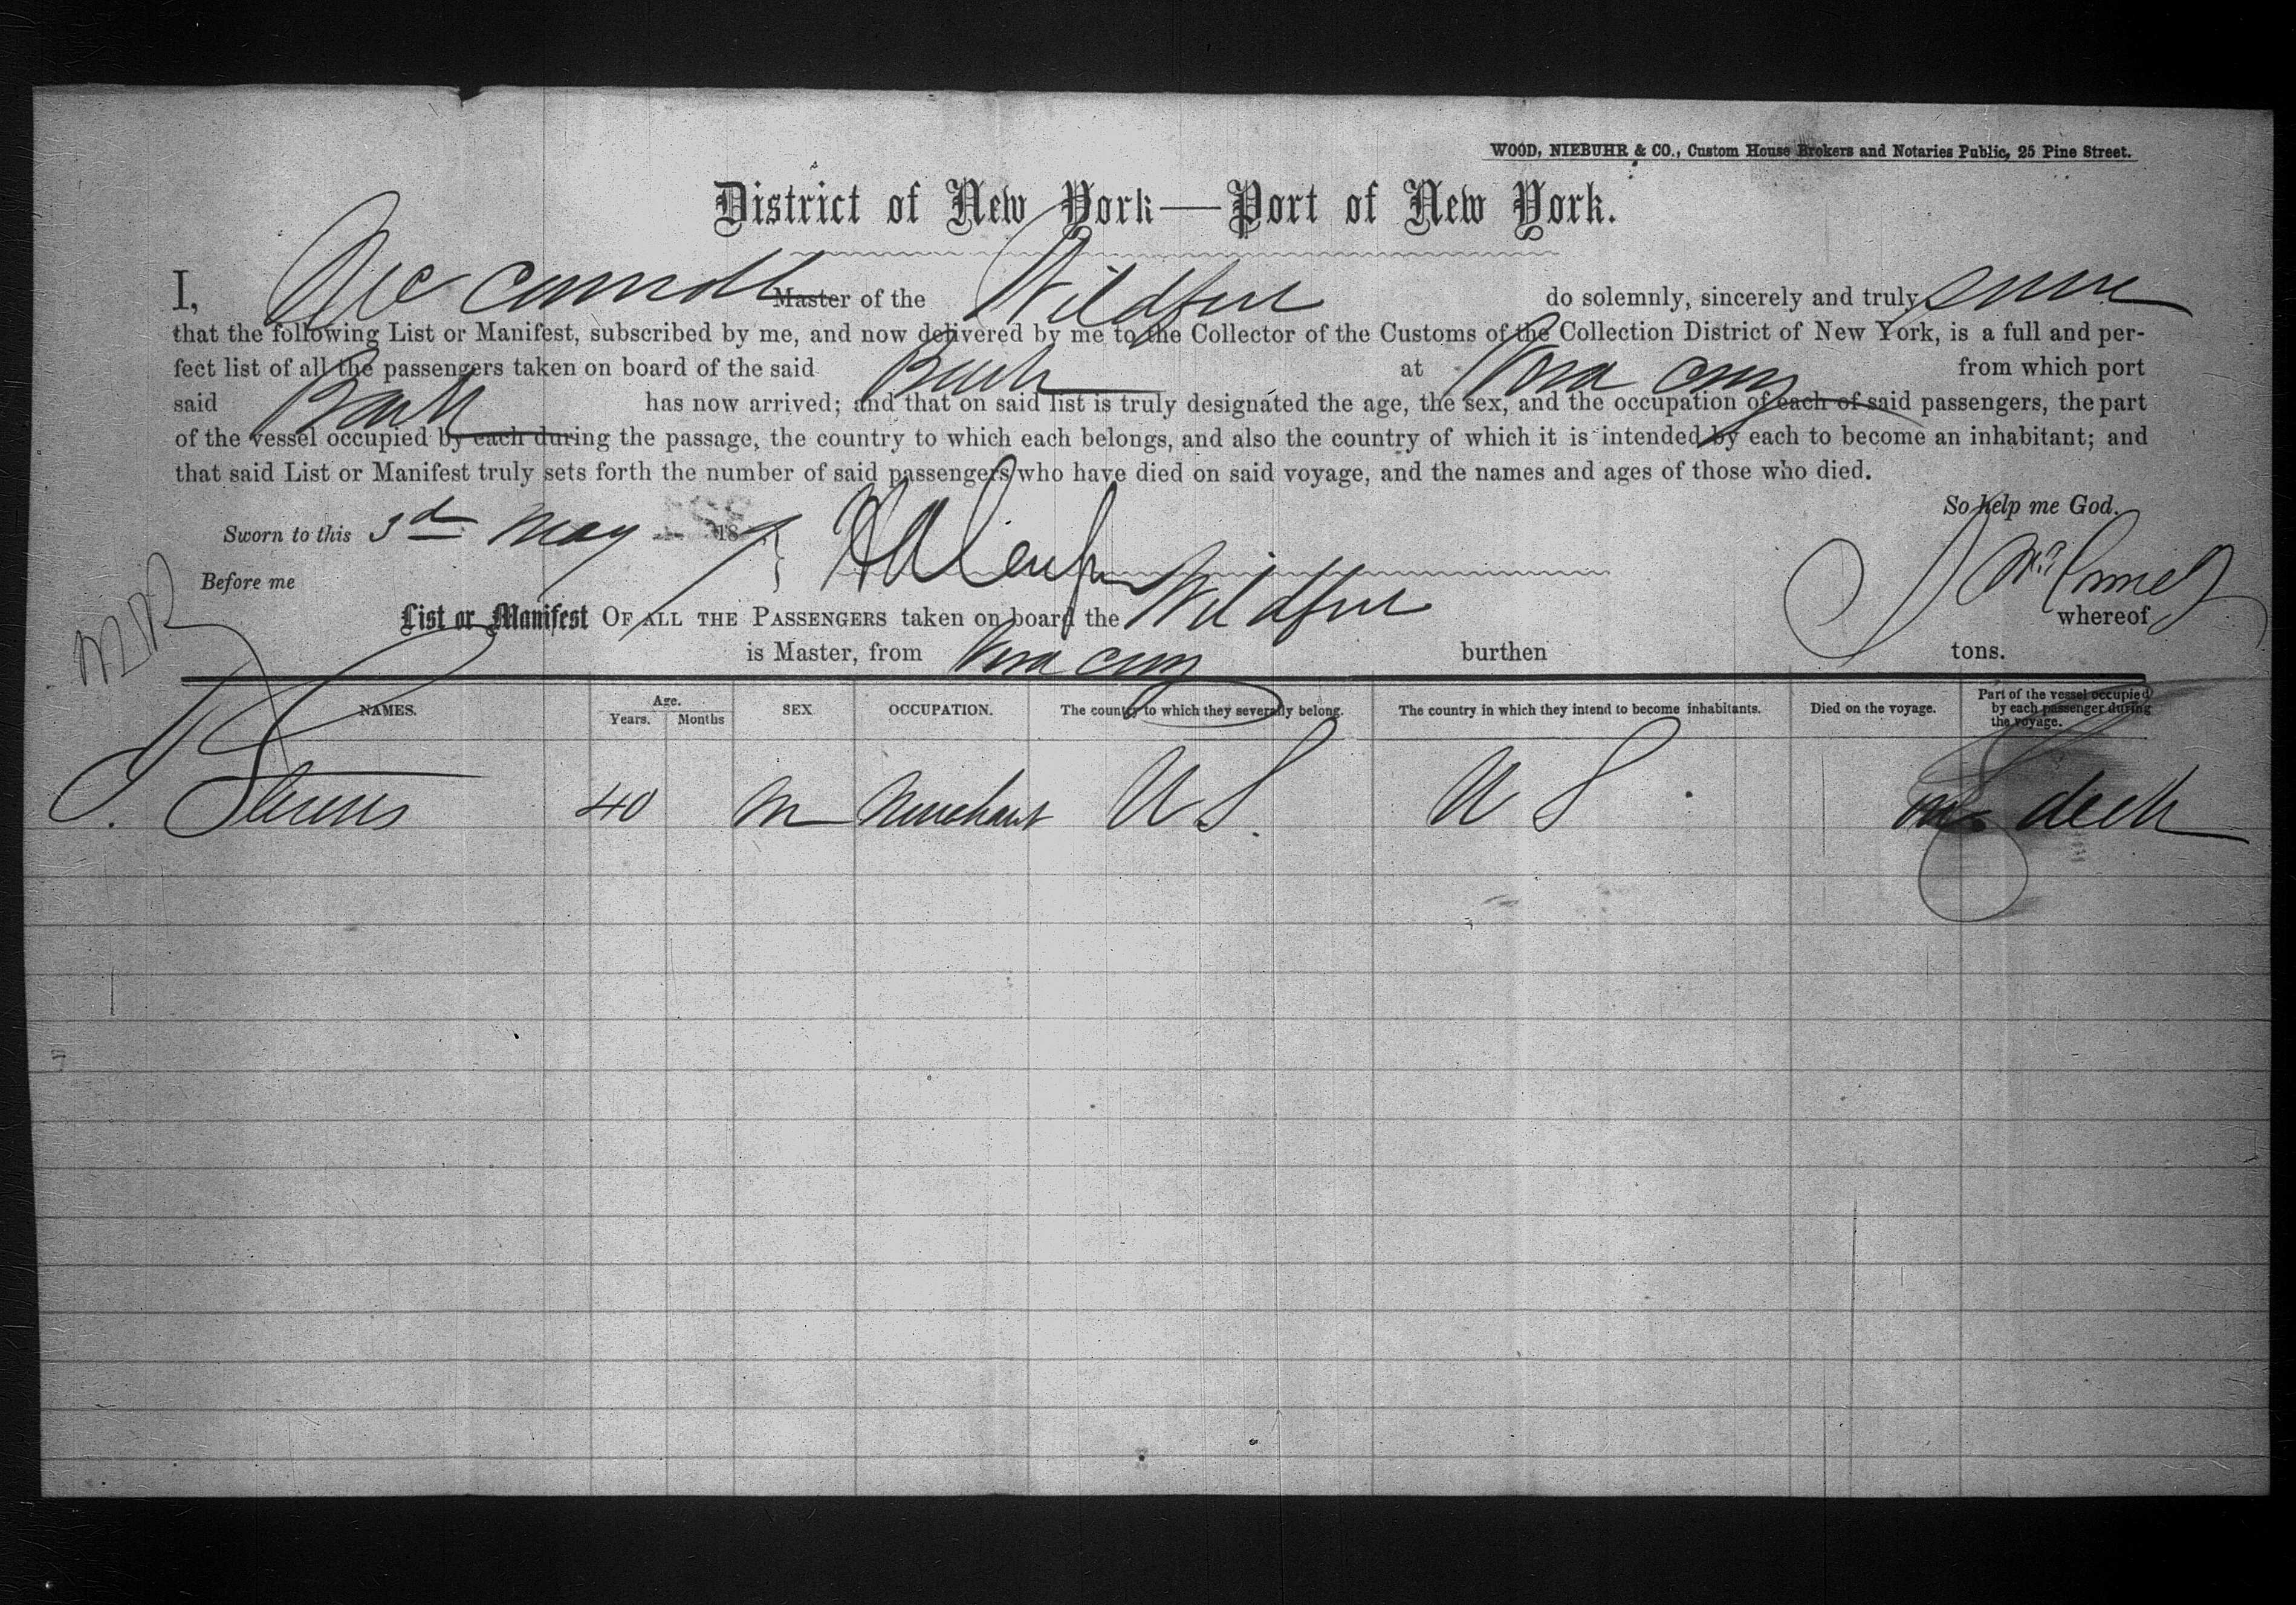 WOOD, NIEBUHR & CO., Custom House Brokers and Notaries Public, 25 Pine Street.
District of New York—Port of New York.
I, Master of the do solemnly, sincerely and truly
that the following List or Manifest, subscribed by me, and now delivered by me to the Collector of the Customs of the Collection District of New York, is a full and per-
fect list of all the passengers taken on board of the said Bark at Vera Cruz from which port
said Bark has now arrived; and that on said list is truly designated the age, the sex, and the occupation of each of said passengers, the part
of the vessel occupied by each during the passage, the country to which each belongs, and also the country of which it is intended by each to become an inhabitant; and
that said List or Manifest truly sets forth the number of said passengers who have died on said voyage, and the names and ages of those who died.
So help me God.
Sworn to this 3d May 18
Before me
List or Manifest OF ALL THE PASSENGERS taken on board the whereof
is Master, from Vera Cruz burthen tons.
NAMES. Age. Years. Months SEX OCCUPATION. The country to which they severally belong. The country in which they intend to become inhabitants. Died on the voyage. Part of the vessel occupied by each passenger during the voyage.
40 M Merchant U S. U S on deck